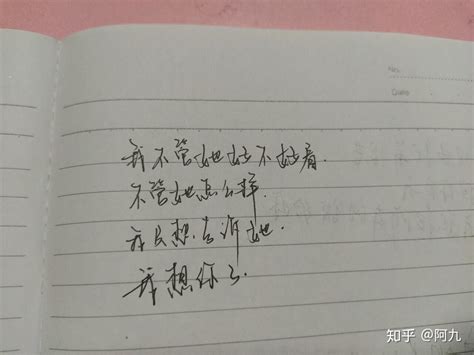 No.
Date
我不管她好不好看.
不管她怎么样.
我只想告诉她.
我想你了.
知乎 @阿九